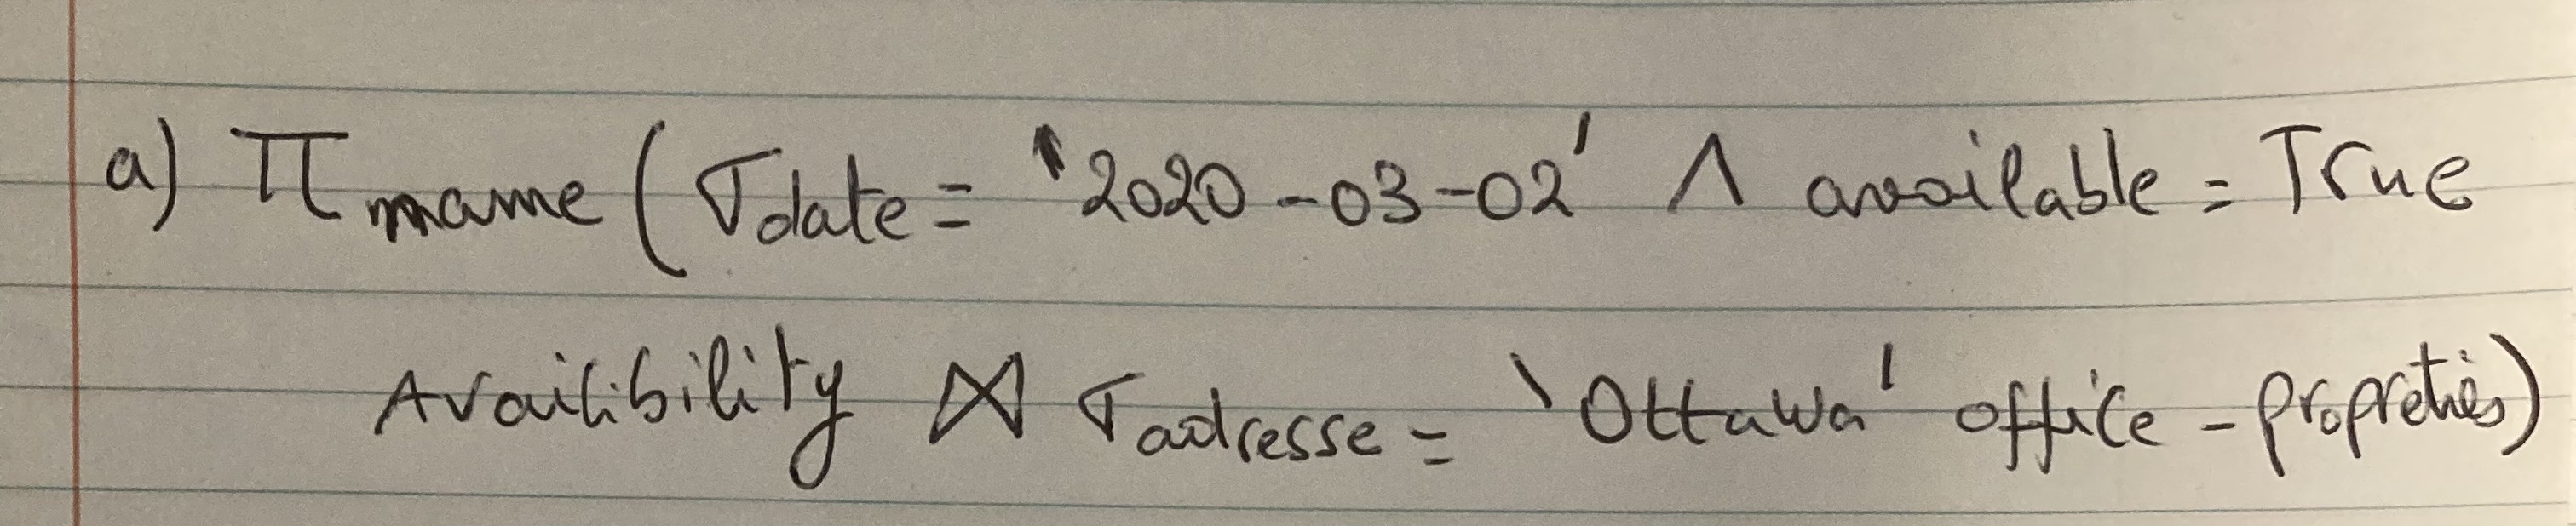 a) π name (σ date = '2020-03-02' ∧ available = True
Availibility ⋈ σ adresse = 'Ottawa' office-propreties)